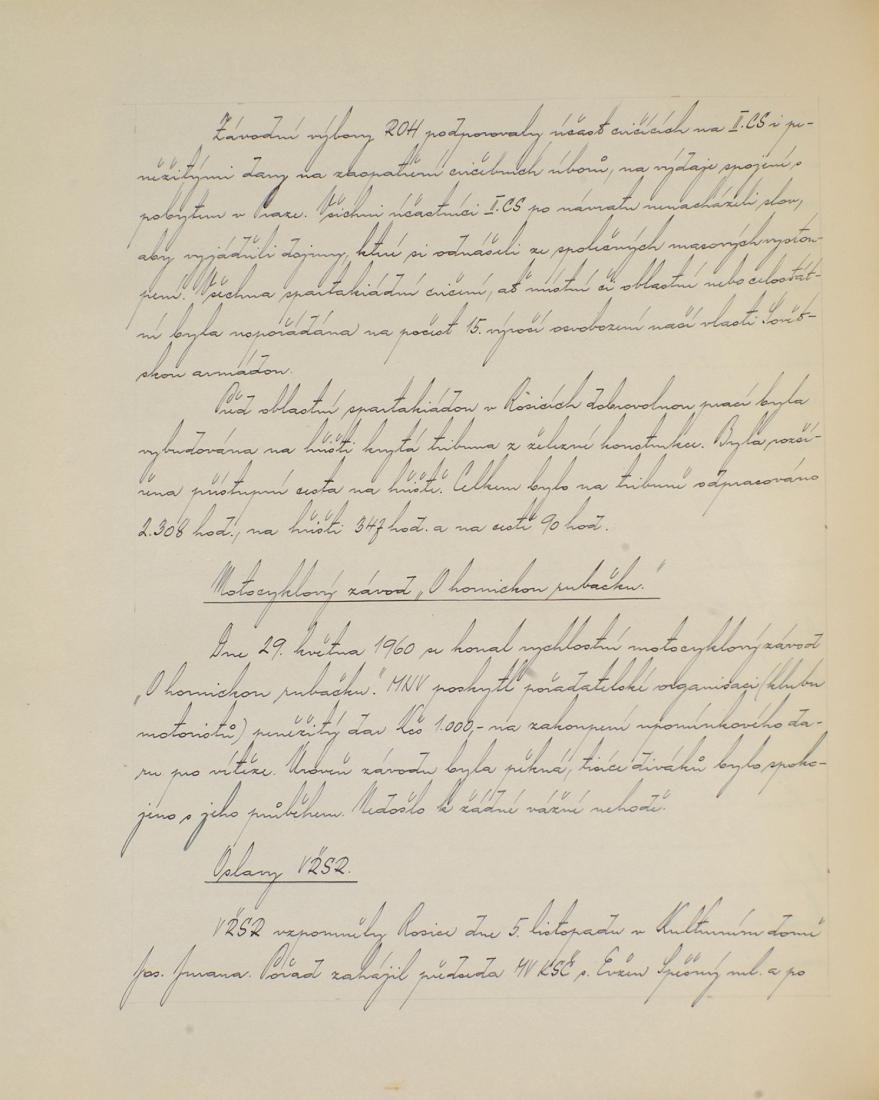 Závodní výbory ROH podporovaly účast cvičících na II.CS i pe-
něžitými dary na zaopatření cvičebních úborů, na výdaje spojené s
pobytem v Praze. Všichni účastníci II.CS po návratu nenacházeli slov,
aby vyjádřili dojmy, které si odnášeli ze společných masových vystou-
pení. Všechna spartakiádní cvičení, ať místní či oblastní nebo celostát-
ní byla uspořádána na počest 15. výročí osvobození naší vlasti Sovět-
skou armádou.
Před oblastní spartakiádou v Rosicích dobrovolnou prací byla
vybudována na hřišti krytá tribuna z železné konstrukce. Byla rozší-
řena přístupní cesta na hřiště. Celkem bylo na tribuně odpracováno
2.308 hod., na hřišti 347 hod. a na cestě 90 hod.
Motocyklový závod „O hornickou rubačku."
Dne 29. května 1960 se konal rychlostní motocyklový závod
„O hornickou rubačku." MNV poskytl pořadatelské organisaci (klubu
motoristů) peněžitý dar Kčs 1.000,- na zakoupení upomínkového da-
ru pro vítěze. Úroveň závodu byla pěkná, tisíce diváků bylo spoko-
jeno s jeho průběhem. Nedošlo k žádné vážné nehodě.
Oslavy VŘSR.
VŘSR vzpomněly Rosice dne 5. listopadu v Kulturním domě
Jos. Jurana. Pořad zahájil předseda MV KSČ s. Evžen Špěšný ml. a po